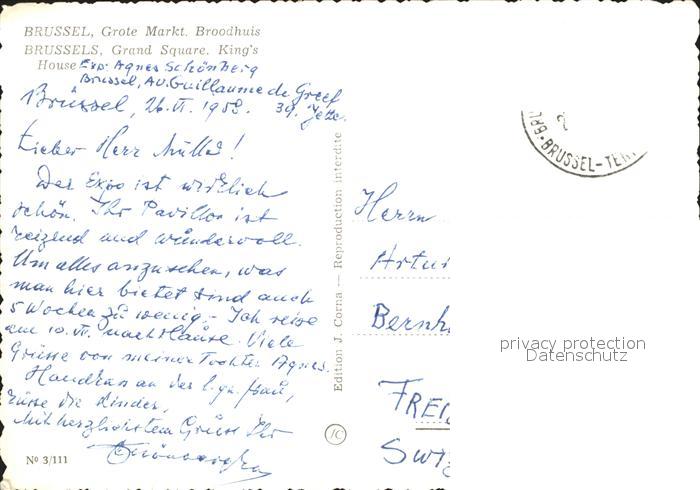 BRUSSEL, Grote Markt. Broodhuis
BRUSSELS, Grand Square. King's
House
Exp: Agnes Schönberg
Brussel, Av. Guillaume de Greef
39. Jette.
Brüssel, 26. VI. 1958.
Lieber Herr Müller!
Der Expo ist wirklich
schön. Ihr Pavillon ist
reizend und wundervoll.
Um alles anzusehen, was
man hier bietet sind auch
5 Wochen zu wenig. - Ich reise
am 10. VII. nach Hause. Viele
Grüsse von meiner Tochter Agnes.
Handkuss an der l. gn. Frau,
Küsse die Kinder,
Mit herzlichstem Gruss Ihr
Edition J. Corna — Reproduction interdite
JC
Nº 3/111
BRUSSEL-TER
Herrn
Artu
Bernh
FREI
SWI
privacy protection
Datenschutz